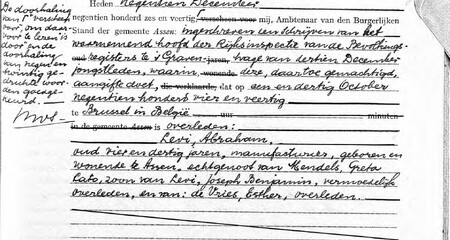 De doorhaling
van 1 "verscheen
voor", om daar-
voor te lezen is
door en de
doorhaling
van negen en
twintig ge-
drukte woor-
den goedge-
keurd.
Heden negentien December
negentien honderd zes en veertig, verscheen voor mij, Ambtenaar van den Burgerlijken
Stand der gemeente Assen: ingeschreven een schrijven van het
waarnemend hoofd der Rijksinspectie van de Bevolkings-
oud registers te 's Graven- jaren, hage van dertien December
jongstleden, waarin, wonende deze, daartoe gemachtigd,
aangifte doet, die verklaarde, dat op een en dertig October
negentien honderd vier en veertig
te Brussel in België uur minuten
in de gemeente Assen is overleden:
Levi, Abraham,
oud vier en dertig jaren, manufacturier, geboren en
wonende te Assen, echtgenoot van Mendels, Greta
Cato, zoon van Levi, Joseph Benjamin, vermoedelijk
overleden, en van: de Vries, Esther, overleden.